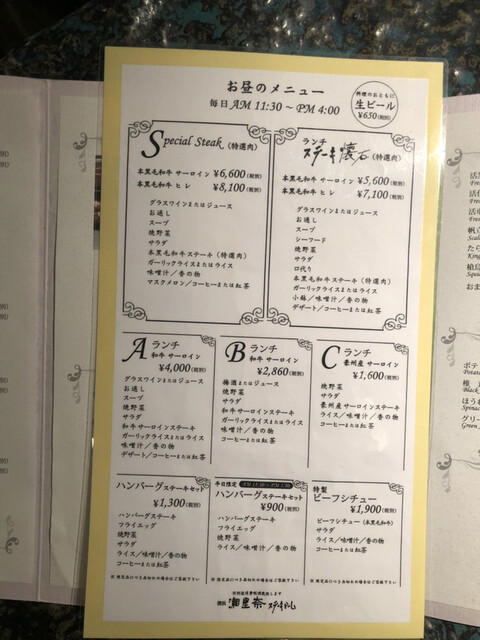 お昼のメニュー
毎日 AM 11:30 ～ PM 4:00
料理のおともに
生ビール
¥650(税別)
Special Steak (特選肉)
本黒毛和牛 サーロイン ¥6,600(税別)
本黒毛和牛 ヒレ ¥8,100(税別)
グラスワインまたはジュース
お通し
スープ
焼野菜
サラダ
本黒毛和牛ステーキ (特選肉)
ガーリックライスまたはライス
味噌汁／香の物
マスクメロン／コーヒーまたは紅茶
ランチ
ステーキ懐石 (特選肉)
本黒毛和牛 サーロイン ¥5,600(税別)
本黒毛和牛 ヒレ ¥7,100(税別)
グラスワインまたはジュース
お通し
スープ
シーフード
焼野菜
サラダ
口代り
本黒毛和牛ステーキ (特選肉)
ガーリックライスまたはライス
小鉢／味噌汁／香の物
デザート／コーヒーまたは紅茶
A ランチ
和牛 サーロイン
¥4,000(税別)
グラスワインまたはジュース
お通し
スープ
焼野菜
サラダ
和牛サーロインステーキ
ガーリックライスまたはライス
味噌汁／香の物
デザート／コーヒーまたは紅茶
B ランチ
和牛 サーロイン
¥2,860(税別)
梅酒またはジュース
焼野菜
サラダ
和牛サーロインステーキ
ガーリックライスまたはライス
味噌汁／香の物
コーヒーまたは紅茶
C ランチ
豪州産 サーロイン
¥1,600(税別)
焼野菜
サラダ
豪州産サーロインステーキ
ライス／味噌汁／香の物
コーヒーまたは紅茶
ハンバーグステーキセット
¥1,300(税別)
ハンバーグステーキ
フライエッグ
焼野菜
サラダ
ライス／味噌汁／香の物
コーヒーまたは紅茶
※限定品につき品切れの場合はご容赦下さい
平日限定
ハンバーグステーキセット
¥900(税別)
ハンバーグステーキ
フライエッグ
焼野菜
ライス／味噌汁／香の物
※限定品につき品切れの場合はご容赦下さい
特製
ビーフシチュー
¥1,900(税別)
ビーフシチュー (本黒毛和牛)
サラダ
ライス／味噌汁／香の物
コーヒーまたは紅茶
※限定品につき品切れの場合はご容赦下さい
※別途消費税頂戴致します